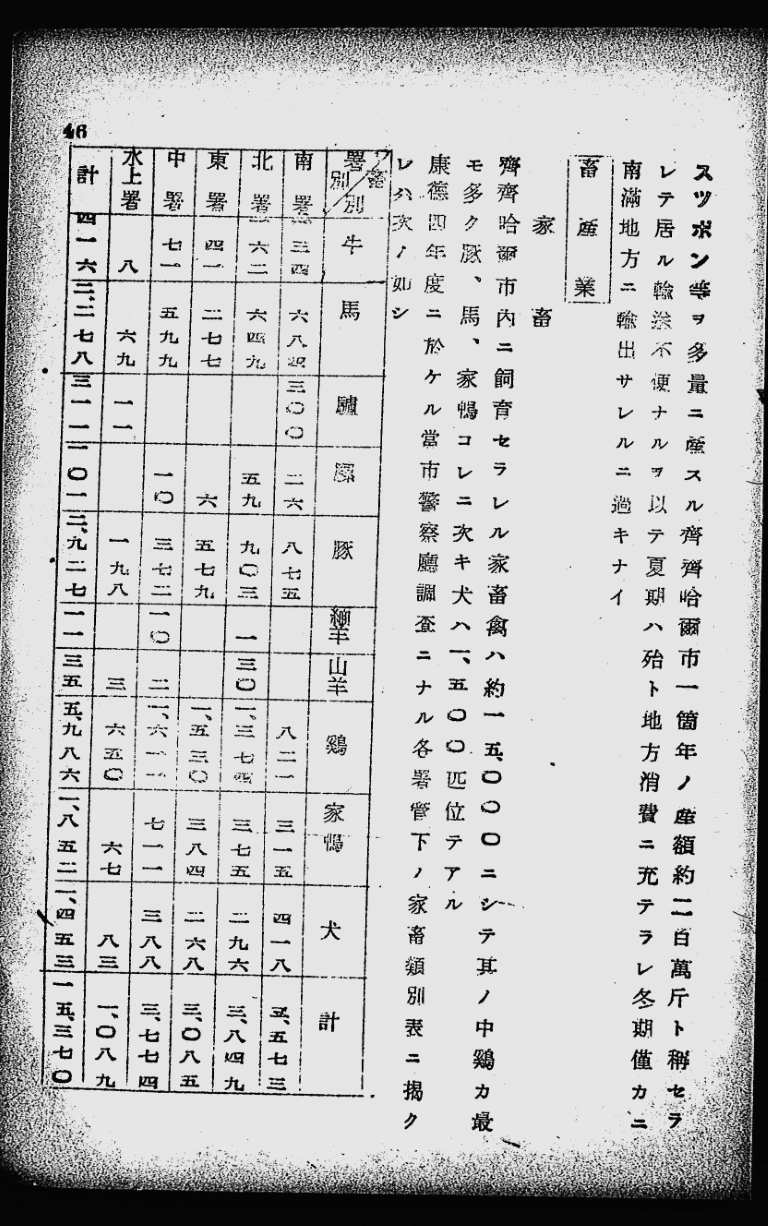 スツポン等ヲ多量ニ產スル齊齊哈爾市一箇年ノ產額約二百萬斤ト稱セラ
レテ居ル輸送不便ナルヲ以テ夏期ハ殆ト地方消費ニ充テラレ冬期僅カニ
南滿地方ニ輸出サレルニ過キナイ
畜產業
家畜
齊齊哈爾市內ニ飼育セラレル家畜禽ハ約一五、〇〇〇ニシテ其ノ中鷄カ最
モ多ク豚、馬、家鴨コレニ次キ犬ハ一、五〇〇匹位テアル
康德四年度ニ於ケル當市警察廳調查ニナル各署管下ノ家畜類別表ニ揭ク
レハ次ノ如シ
署別 畜別 牛 馬 驢 騾 豚 緬羊 山羊 鷄 家鴨 犬 計
南署 三四 六八四 三〇〇 二六 八七五 八二一 三一五 四一八 三、五七三
北署 六二 六四九 五九 九〇三 一 三〇 一、三七四 三七五 二九六 三、八四九
東署 四一 二七七 六 五七九 一、五三〇 三八四 二六八 三、〇八五
中署 七一 五九九 一〇 三七二 一〇 二 一、六一一 七一一 三八八 三、七七四
水上署 八 六九 一一 一九八 三 六五〇 六七 八三 一、〇八九
計 四一六 二、二七八 三一一 一〇一 二、九二七 一一 三五 五、九八六 一、八五二 一、四五三 一五、三七〇
46